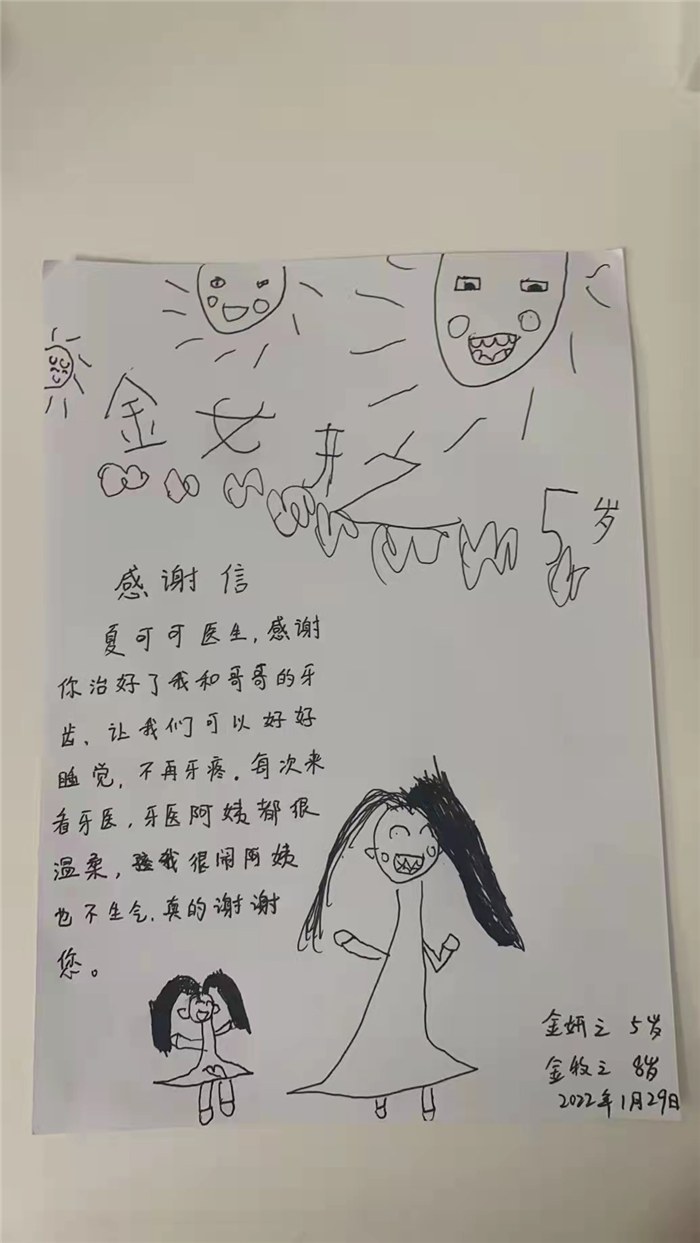 金妍之
5岁
感谢信
夏可可医生，感谢
你治好了我和哥哥的牙
齿、让我们可以好好
睡觉，不再牙疼。每次来
看牙医，牙医阿姨都很
温柔，我很闹阿姨
也不生气，真的谢谢
您。
金妍之 5岁
金牧之 8岁
2022年1月29日